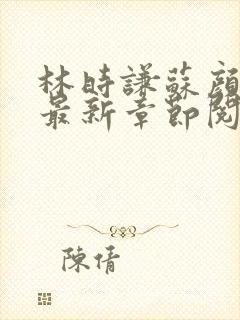 林時謙蘇顏
最新章節閱
陳倩